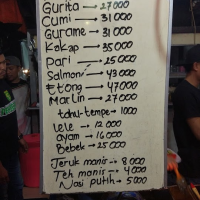 Gurita → 27000
Cumi → 31000
Gurame → 31000
Kakap → 35000
Pari → 25000
Salmon → 43000
Etong → 47000
Marlin → 27000
tahu-tempe → 1000
lele → 12000
ayam → 16000
Bebek → 25000
Jeruk manis → 8000
Teh manis → 4000
Nasi putih → 5000